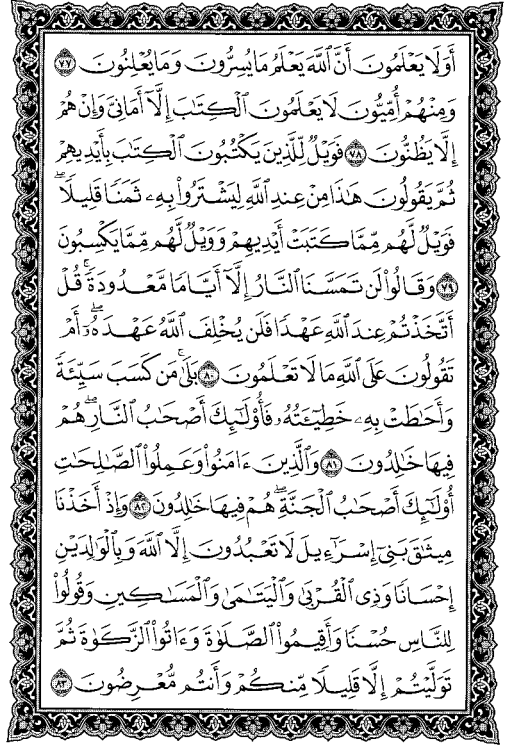 أَوَلَا يَعْلَمُونَ أَنَّ ٱللَّهَ يَعْلَمُ مَا يُسِرُّونَ وَمَا يُعْلِنُونَ ٧٧
وَمِنْهُمْ أُمِّيُّونَ لَا يَعْلَمُونَ ٱلْكِتَٰبَ إِلَّآ أَمَانِىَّ وَإِنْ هُمْ
إِلَّا يَظُنُّونَ ٧٨ فَوَيْلٌ لِّلَّذِينَ يَكْتُبُونَ ٱلْكِتَٰبَ بِأَيْدِيهِمْ
ثُمَّ يَقُولُونَ هَٰذَا مِنْ عِندِ ٱللَّهِ لِيَشْتَرُوا۟ بِهِۦ ثَمَنًا قَلِيلًا ۖ
فَوَيْلٌ لَّهُم مِّمَّا كَتَبَتْ أَيْدِيهِمْ وَوَيْلٌ لَّهُم مِّمَّا يَكْسِبُونَ
٧٩ وَقَالُوا۟ لَن تَمَسَّنَا ٱلنَّارُ إِلَّآ أَيَّامًا مَّعْدُودَةً ۚ قُلْ
أَتَّخَذْتُمْ عِندَ ٱللَّهِ عَهْدًا فَلَن يُخْلِفَ ٱللَّهُ عَهْدَهُۥٓ ۖ أَمْ
تَقُولُونَ عَلَى ٱللَّهِ مَا لَا تَعْلَمُونَ ٨٠ بَلَىٰ ۚ مَن كَسَبَ سَيِّئَةً
وَأَحَٰطَتْ بِهِۦ خَطِيٓـَٔتُهُۥ فَأُو۟لَٰٓئِكَ أَصْحَٰبُ ٱلنَّارِ ۖ هُمْ
فِيهَا خَٰلِدُونَ ٨١ وَٱلَّذِينَ ءَامَنُوا۟ وَعَمِلُوا۟ ٱلصَّٰلِحَٰتِ
أُو۟لَٰٓئِكَ أَصْحَٰبُ ٱلْجَنَّةِ ۖ هُمْ فِيهَا خَٰلِدُونَ ٨٢ وَإِذْ أَخَذْنَا
مِيثَٰقَ بَنِىٓ إِسْرَٰٓءِيلَ لَا تَعْبُدُونَ إِلَّا ٱللَّهَ وَبِٱلْوَٰلِدَيْنِ
إِحْسَانًا وَذِى ٱلْقُرْبَىٰ وَٱلْيَتَٰمَىٰ وَٱلْمَسَٰكِينِ وَقُولُوا۟
لِلنَّاسِ حُسْنًا وَأَقِيمُوا۟ ٱلصَّلَوٰةَ وَءَاتُوا۟ ٱلزَّكَوٰةَ ثُمَّ
تَوَلَّيْتُمْ إِلَّا قَلِيلًا مِّنكُمْ وَأَنتُم مُّعْرِضُونَ ٨٣